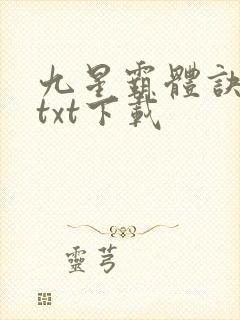 九星霸體訣
txt下載
靈芎